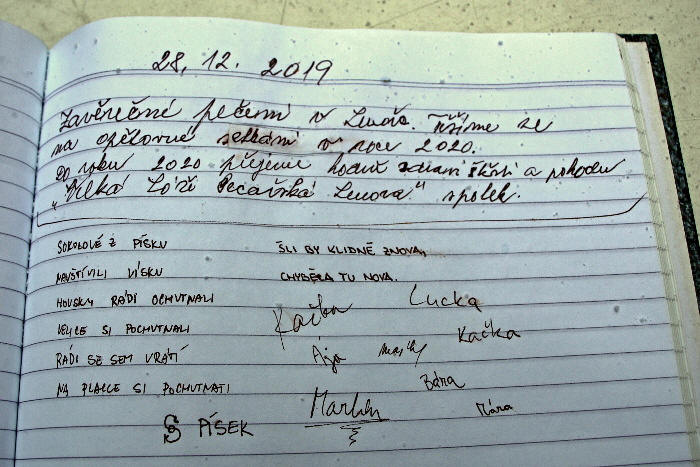 28. 12. 2019
Závěrečné pečení v Lenoře. Těšíme se
na opětovné setkání v roce 2020.
Do roku 2020 přejeme hodně zdraví štěstí a pohodu
„Velká Lóže Pecařská Lenora" spolek.
SOKOLOVÉ Z PÍSKU
NAVŠTÍVILI VÍSKU
HOUSKY RÁDI OCHUTNALI
VELICE SI POCHUTNALI
RÁDI SE SEM VRÁTÍ
NA PLACCE SI POCHUTNATI
ŠLI BY KLIDNĚ ZNOVA,
CHYBĚLA TU NOVA.
Kačka Lucka
Kačka
Ája
Bára
Martin Mára
PÍSEK